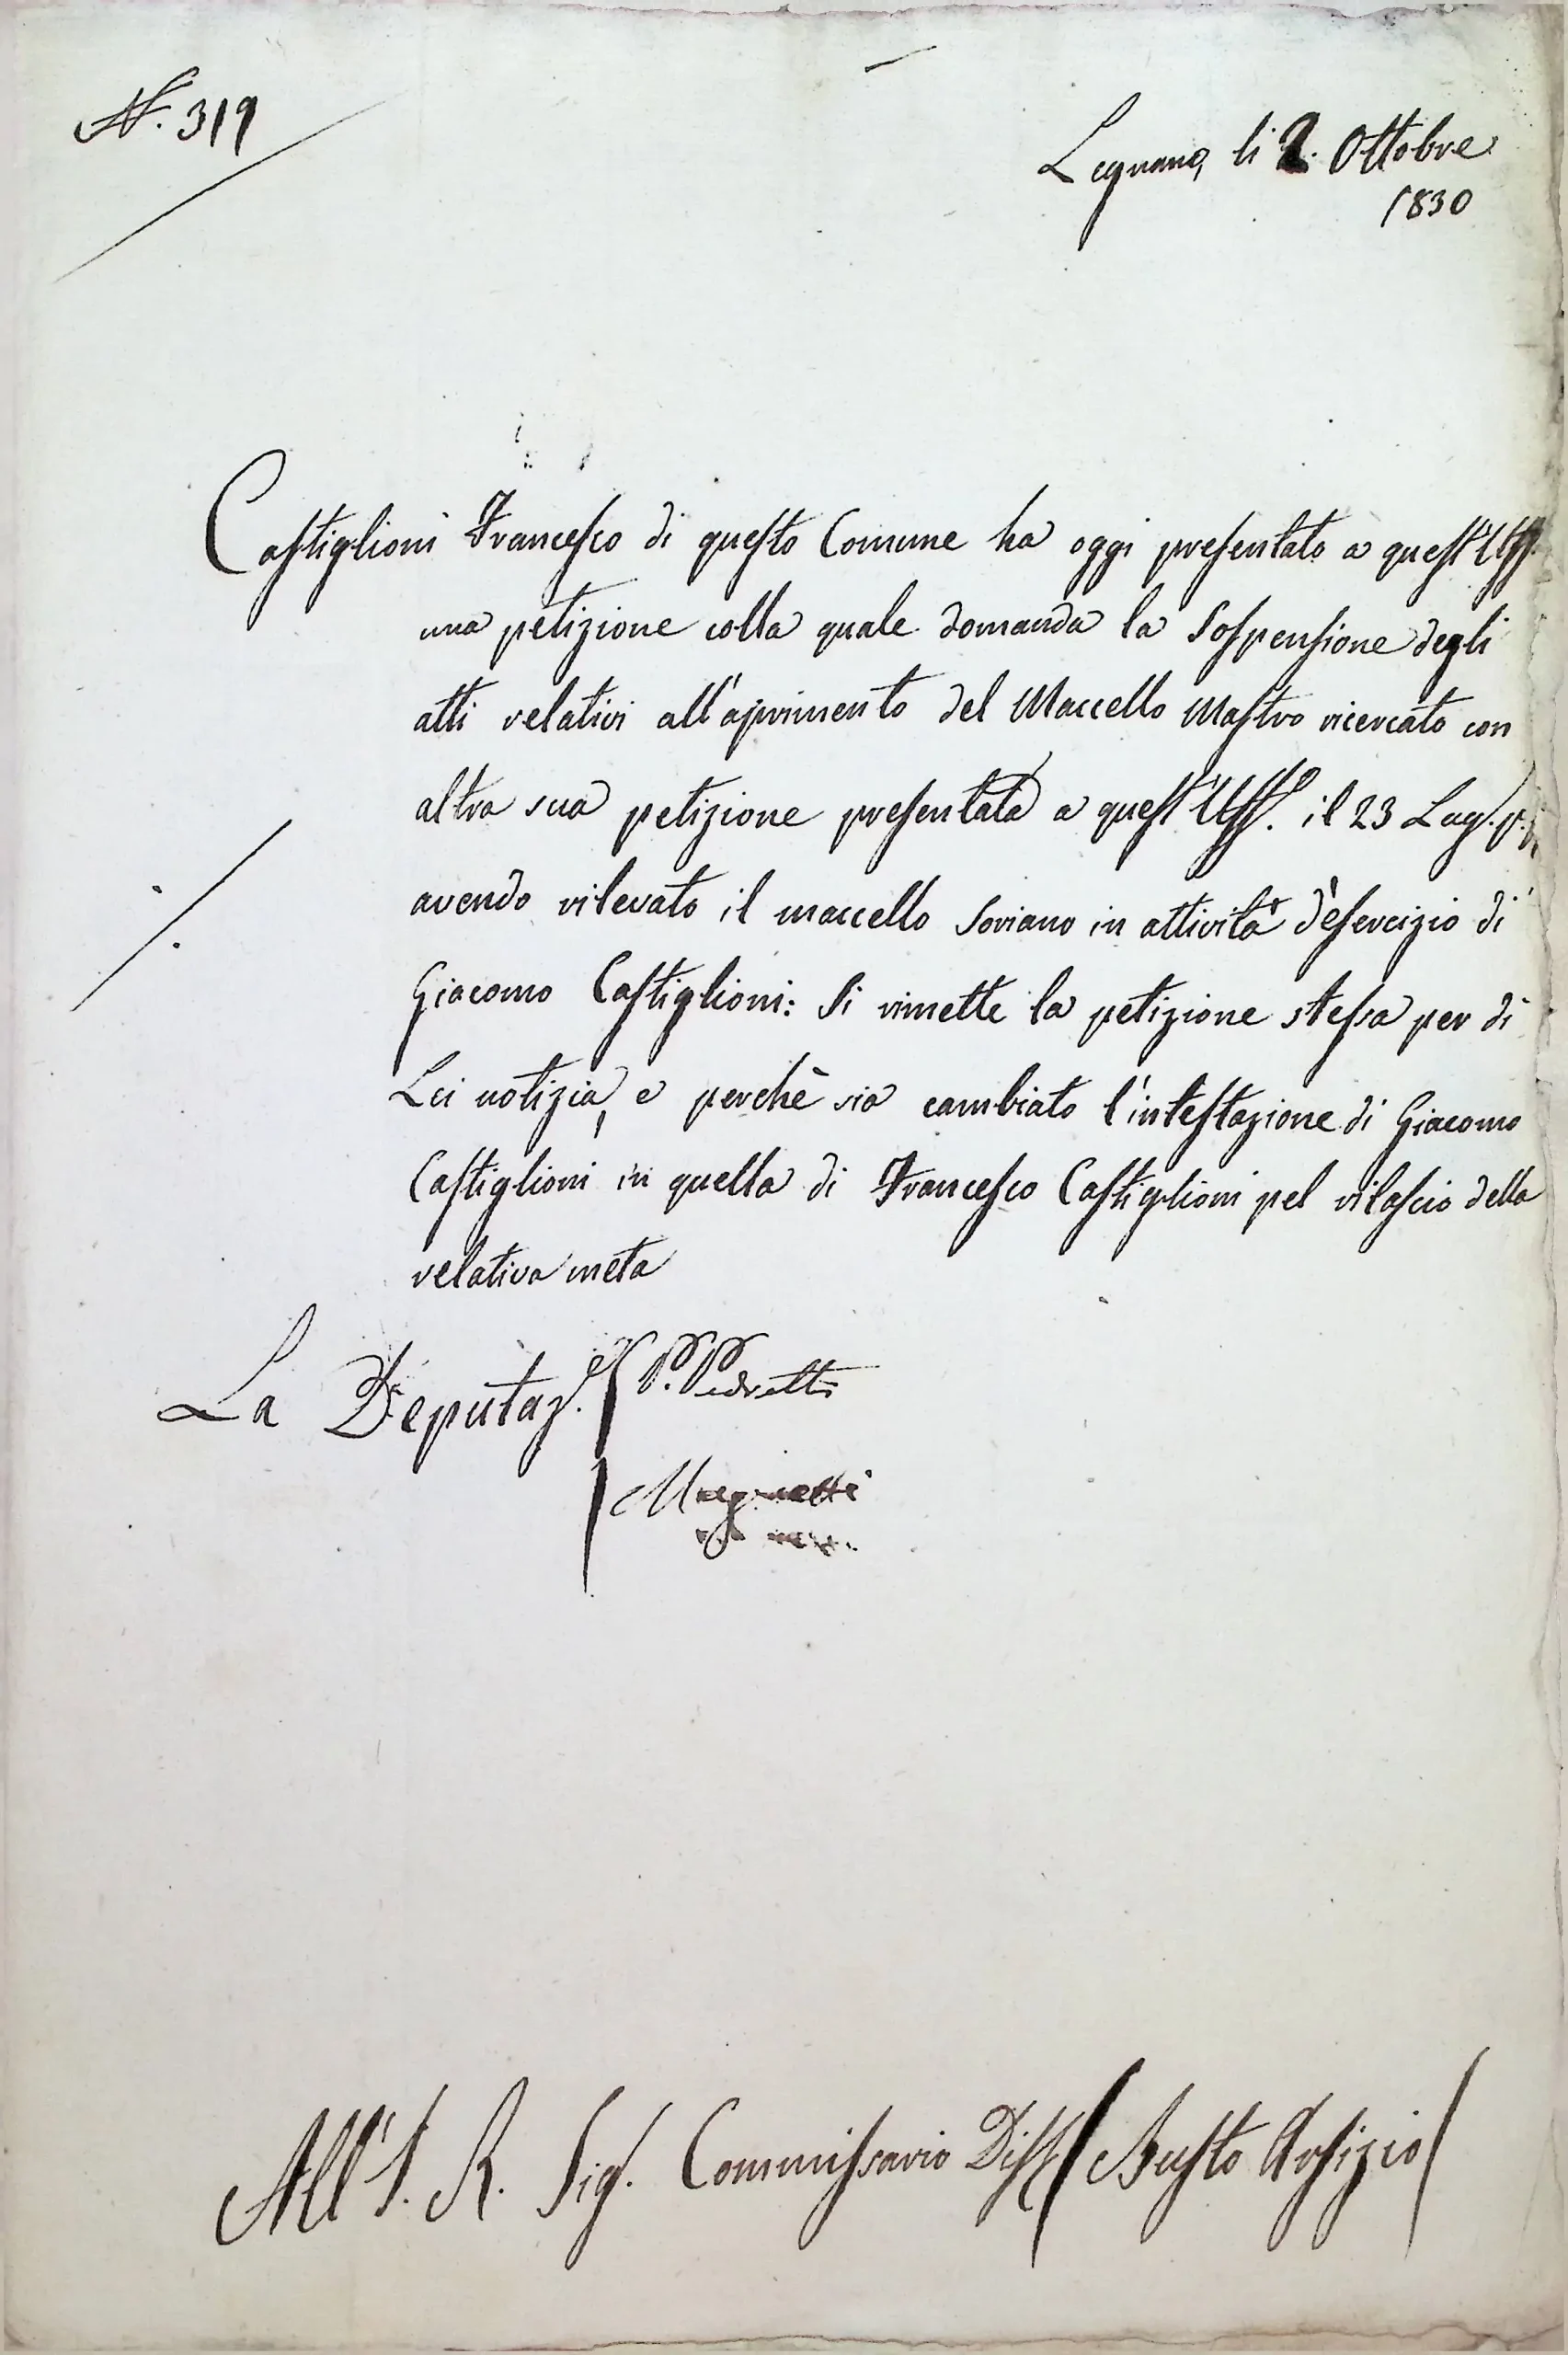 N. 319
Legnano, li 2. Ottobre
1830
Castiglioni Francesco di questo Comune ha oggi presentato a quest'Uff.
una petizione colla quale domanda la Sospensione degli
atti relativi all'aprimento del Maccello Mastro ricercato con
altra sua petizione presentata a quest'Uff.o il 23 Lug. p.
avendo rilevato il maccello Soriano in attività d'esercizio di
Giacomo Castiglioni: Si rimette la petizione stessa per di
Lei notizia, e perchè sia cambiato l'intestazione di Giacomo
Castiglioni in quella di Francesco Castiglioni pel rilascio della
relativa meta
La Deputaz.e P. Pedretti
All'I. R. Sig. Commissario Dist. (Busto Arsizio)